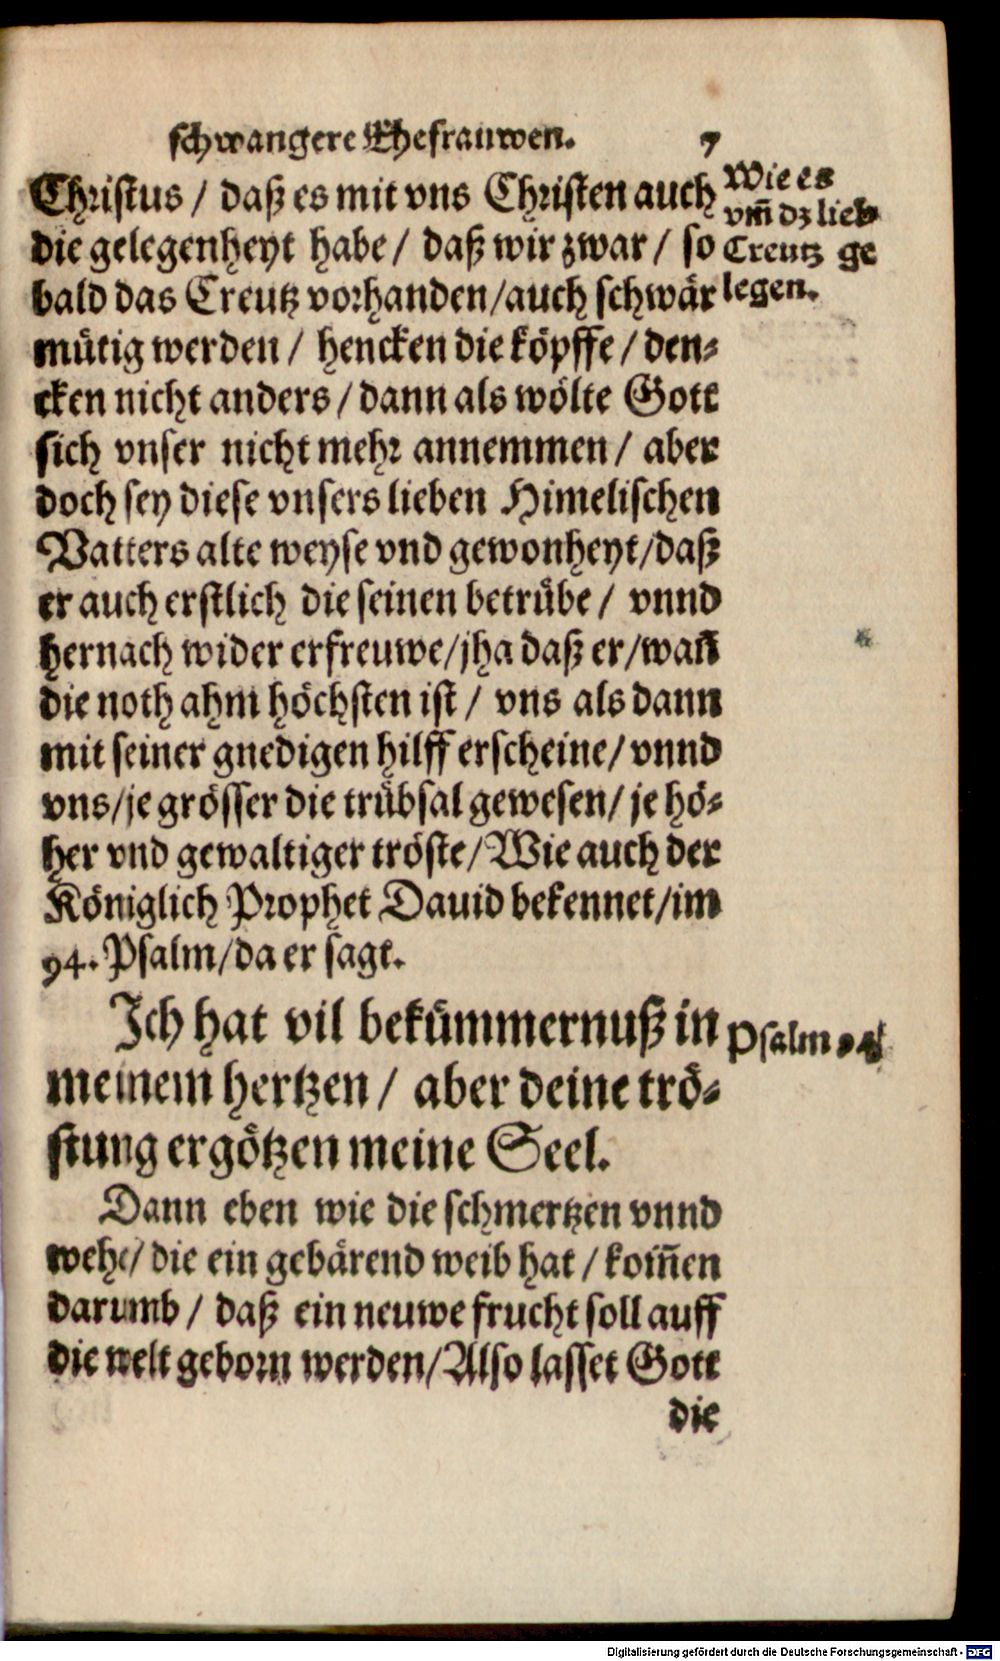 schwangere Ehefrauwen. 7
Christus / daß es mit vns Christen auch
die gelegenheyt habe / daß wir zwar / so
bald das Creutz vorhanden/auch schwär
mütig werden / hencken die köpffe / den⸗
cken nicht anders / dann als wölte Gott
sich vnser nicht mehr annemmen / aber
doch sey diese vnsers lieben Himelischen
Vatters alte weyse vnd gewonheyt/daß
er auch erstlich die seinen betrübe / vnnd
hernach wider erfreuwe/jha daß er/wañ
die noth ahm höchsten ist / vns als dann
mit seiner gnedigen hilff erscheine/ vnnd
vns/je grösser die trübsal gewesen/ je hö⸗
her vnd gewaltiger tröste/Wie auch der
Königlich Prophet Dauid bekennet/im
94. Psalm/da er sagt.
Ich hat vil bekümmernuß in
meinem hertzen / aber deine trö⸗
stung ergötzen meine Seel.
Dann eben wie die schmertzen vnnd
wehe/ die ein gebärend weib hat / kom̃en
darumb / daß ein neuwe frucht soll auff
die welt geborn werden/Also lasset Gott
die
Wie es
vm̃ dz lieb
Creutz ge
legen.
Psalm 94
Digitalisierung gefördert durch die Deutsche Forschungsgemeinschaft - DFG